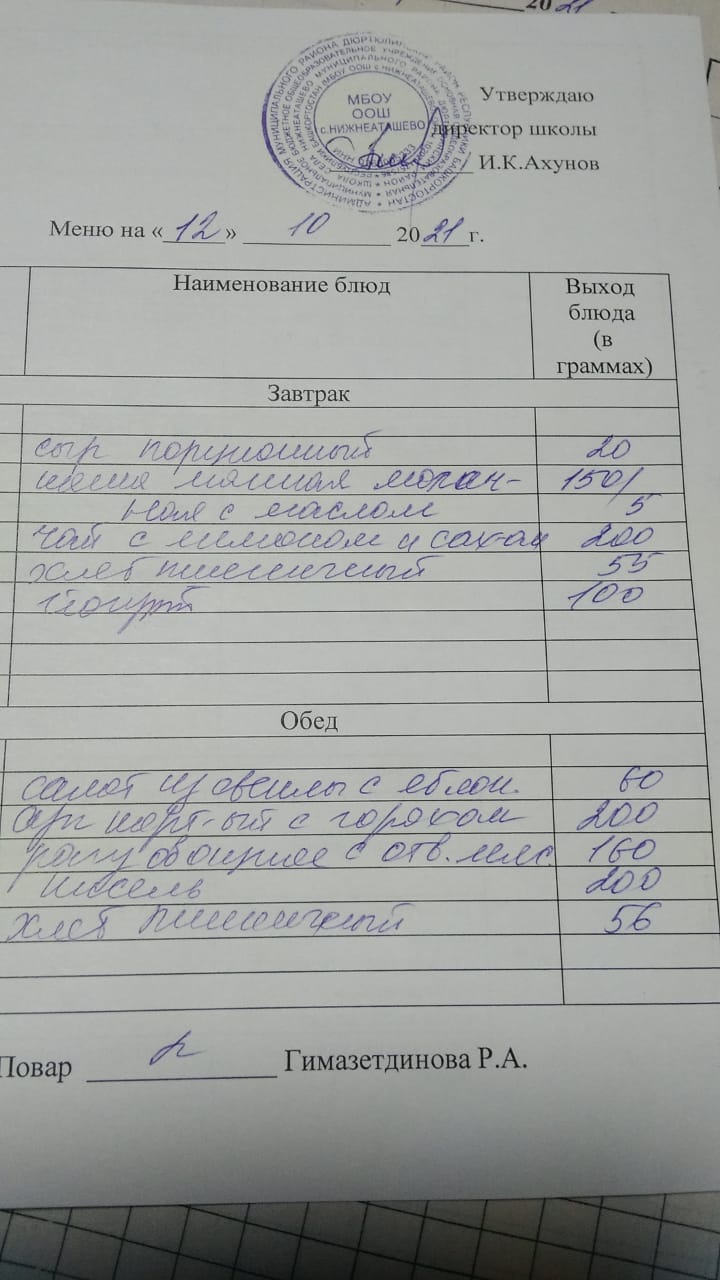 20 21
МБОУ
ООШ
с.НИЖНЕАТАШЕВО
Утверждаю
директор школы
И.К.Ахунов
Меню на « 12 » 10 20 21 г.
Наименование блюд
Выход
блюда
(в
граммах)
Завтрак
сыр порционный 20
каша манная молоч- 150/
ная с маслом 5
чай с лимоном и сахом 200
хлеб пшеничный 55
йогурт 100
Обед
салат из свеклы с яблок. 60
суп карт-ый с горохом 200
рагу овощное с отв. мяс 160
кисель 200
хлеб пшеничный 56
Повар Гимазетдинова Р.А.